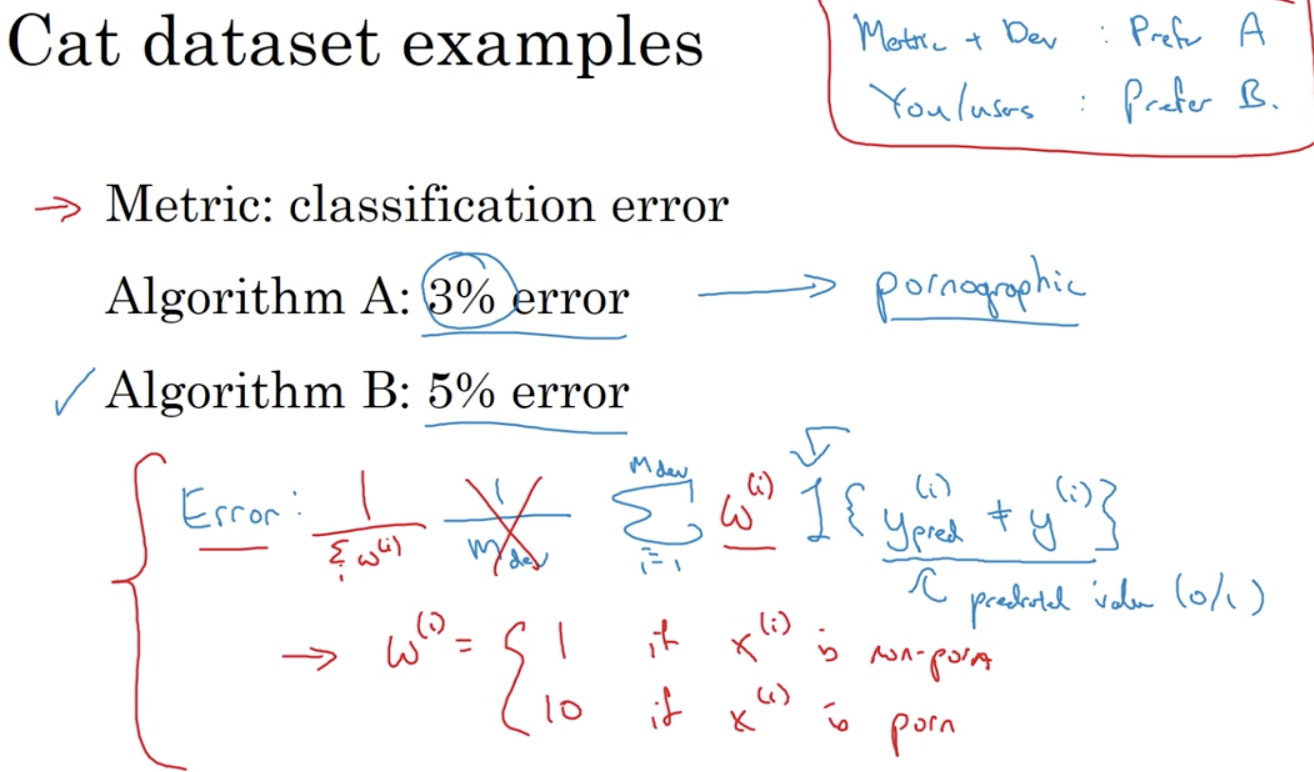 Cat dataset examples
Metric + Dev : Prefer A
You/users : Prefer B.
→ Metric: classification error
Algorithm A: 3% error → pornographic
✓ Algorithm B: 5% error
Error: 1/Σᵢ w⁽ⁱ⁾ 1/m_dev Σ_{i=1}^{m_dev} w⁽ⁱ⁾ 1{y_pred⁽ⁱ⁾ ≠ y⁽ⁱ⁾}
predicted value (0/1)
→ w⁽ⁱ⁾ = { 1 if x⁽ⁱ⁾ is non-porn
10 if x⁽ⁱ⁾ is porn